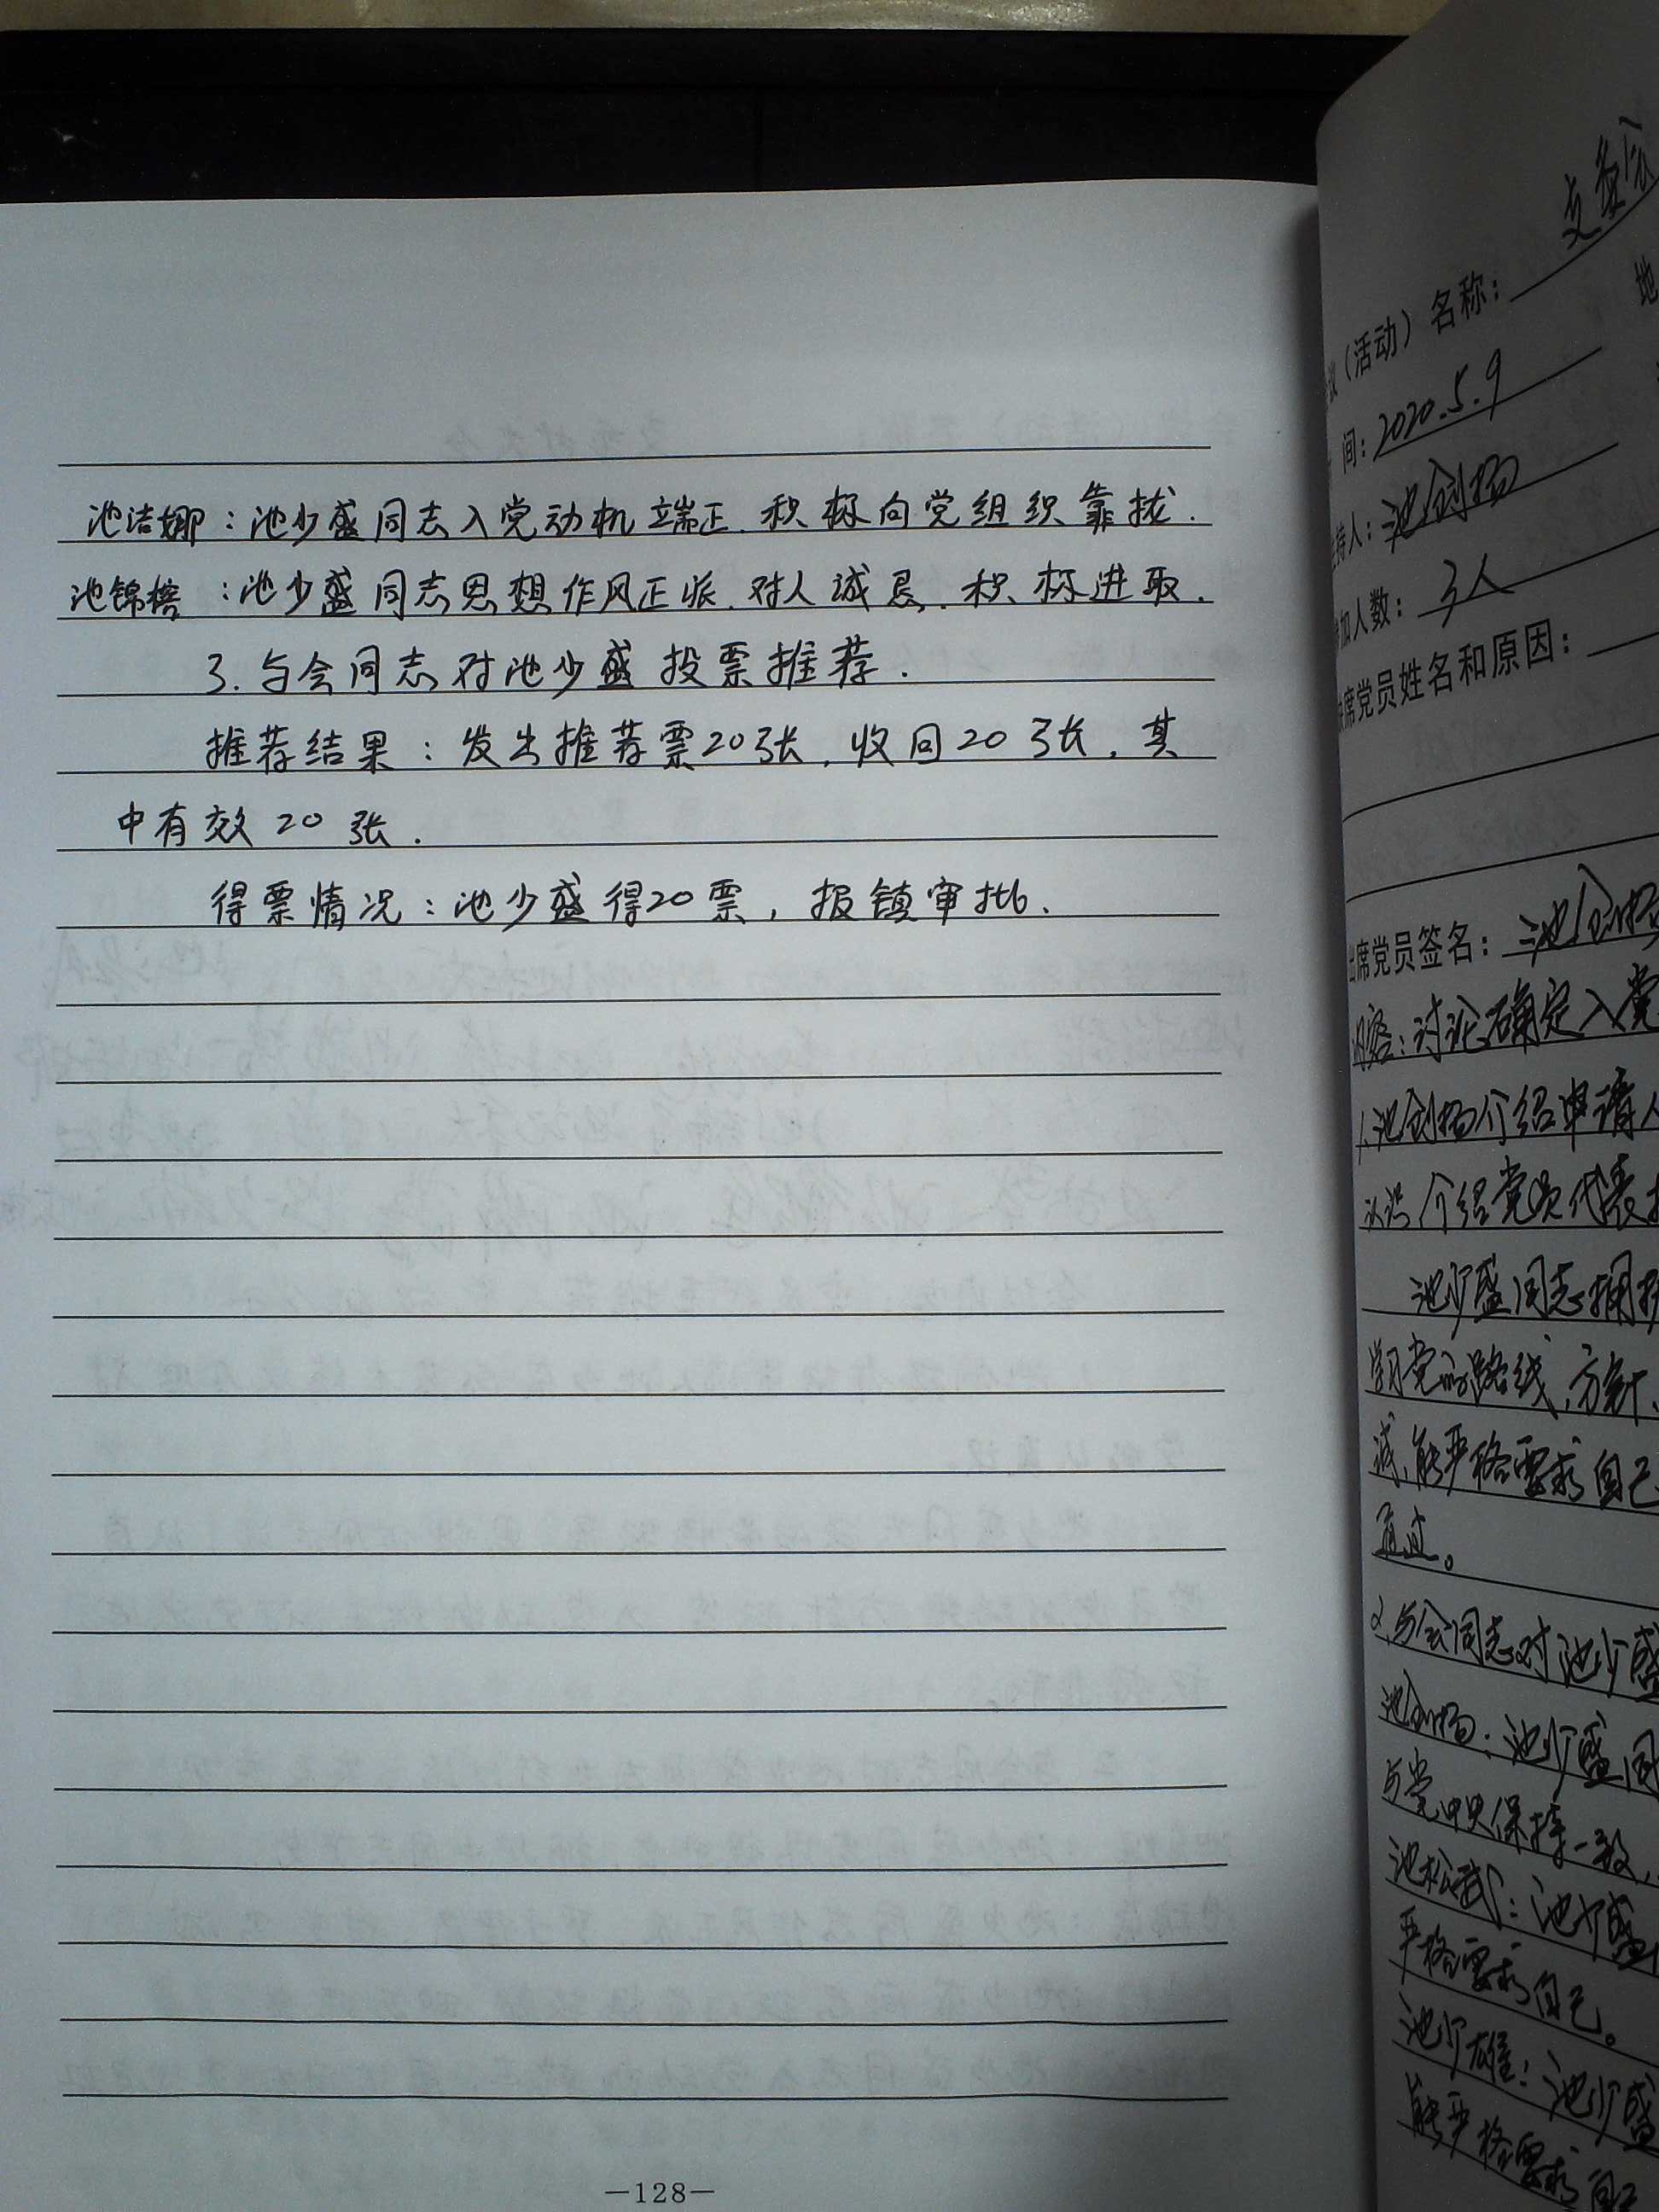 池洁娜：池少盛同志入党动机端正.积极向党组织靠拢.
池锦榕：池少盛同志思想作风正派.对人诚恳.积极进取.
3.与会同志对池少盛投票推荐.
推荐结果：发出推荐票20张.收回20张.其
中有效20张.
得票情况：池少盛得20票，报镇审批.
—128—
支委会
议（活动）名称：
地
间：2020.5.9
主持人：池创扬
参加人数：3人
缺席党员姓名和原因：
出席党员签名：池创扬
内容：讨论确定入党
1.池创扬介绍申请人
认识介绍党员代表推
池少盛同志拥护
学习党的路线、方针、
诚,能严格要求自己
通过。
2.与会同志对池少盛
池创扬：池少盛同
与党中央保持一致,
池松武：池少盛
严格要求自己。
池少雄：池少盛
能严格要求自己